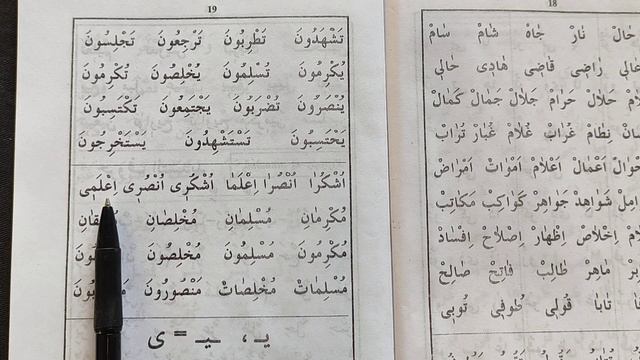 19
تَشْهَدُونَ تَضْرِبُونَ تَرْجِعُونَ تَجْلِسُونَ
يُكْرِمُونَ تُسْلِمُونَ يُخْلِصُونَ تُكْرِمُونَ
يُنْصَرُونَ تُضْرَبُونَ يَجْتَمِعُونَ تَكْتَسِبُونَ
يَحْتَسِبُونَ تَسْتَشْهِدُونَ يَسْتَخْرِجُونَ
اُشْكُرَا اُنْصُرَا اِعْلَمَا اُشْكُرِى اُنْصُرِى اِعْلَمِى
مُكْرِمَانِ مُسْلِمَانِ مُخْلِصَانِ
مُكْرِمُونَ مُسْلِمُونَ مُخْلِصُونَ
مُسْلِمَاتٌ مُخْلِصَاتٌ مَنْصُورُونَ
يـ ، ـيـ = ى
18
خَالْ نَارْ جَاهْ شَامْ سَامْ
عَالِى رَاضِى قَاضِى هَادِى خَالِى
حَلَالْ حَرَامْ جَلَالْ جَمَالْ كَمَالْ
نِظَامْ غُرَابْ غُلَامْ غُبَارْ تُرَابْ
اَعْمَالْ اَعْلَامْ اَمْوَاتْ اَمْرَاضْ
شَوَاهِدْ جَوَاهِرْ كَوَاكِبْ مَكَاتِبْ
اِخْلَاصْ اِظْهَارْ اِصْلَاحْ اِفْسَادْ
مَاهِرْ طَالِبْ فَاتِحْ صَالِحْ
تَابَا قُولِى طُوفِى تُوبِى